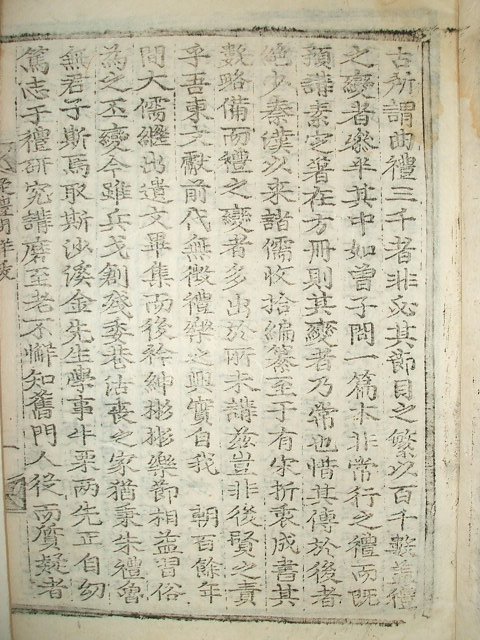 古所謂曲禮三千者非必其節目之繁以百千數蓋禮
之變者參半其中如曾子問一篇本非常行之禮而旣
預講素定著在方冊則其變者乃常也惜其傳於後者
絶少秦漢以來諸儒收拾編纂至于有宋折衷成書其
數略備而禮之變者多出於所未講玆豈非後賢之責
乎吾東文獻前代無徵禮樂之興實自我 朝百餘年
間大儒繼出遺文畢集而後衿紳彬彬樂節相益習俗
爲之丕變今雖兵戈創殘委巷治喪之家猶秉朱禮魯
無君子斯焉取斯沙溪金先生學事牛栗兩先正自幼
篤志于禮硏究講磨至老不懈知舊門人從而質疑者